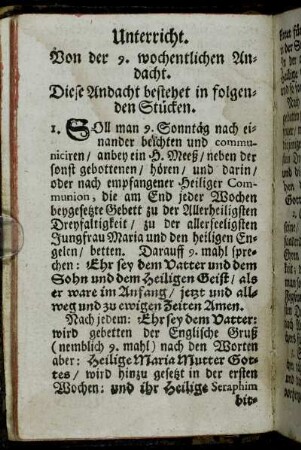 Unterricht.
Von der 9. wochentlichen An-
dacht.
Diese Andacht bestehet in folgen-
den Stücken.
1. SOll man 9. Sonntäg nach ei-
nander beichten und commu-
niciren / anbey ein H. Meeß / neben der
sonst gebottenen / hören / und darin /
oder nach empfangener Heiliger Com-
munion, die am End jeder Wochen
beygesetzte Gebett zu der Allerheiligsten
Dreyfaltigkeit / zu der allerseeligsten
Jungfrau Maria und den heiligen En-
gelen / betten. Darauff 9. mahl spre-
chen: Ehr sey dem Vatter und dem
Sohn und dem Heiligen Geist / als
er ware im Anfang / jetzt und all-
weg und zu ewigen Zeiten Amen.
Nach jedem: Ehr sey dem Vatter:
wird gebetten der Englische Gruß
(nemblich 9. mahl) nach den Worten
aber: Heilige Maria Mutter Got-
tes / wird hinzu gesetzt in der ersten
Wochen: und ihr Heilige Seraphim
bit-